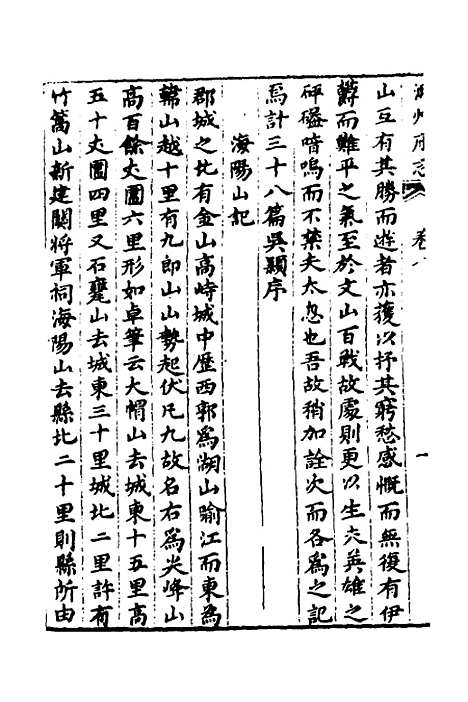 潮州府志 卷八 一
山互有其勝而遊者亦復以抒其窮愁感慨而無復有伊
欝而難平之氣至於文山百戰故處則更以生夫英雄之
砰磕喑嗚而不禁夫太息也吾故稍加詮次而各為之記
焉計三十八篇吳穎序
海陽山記
郡城之北有金山高峙城中歴西郭為湖山踰江而東為
韓山越十里有九郎山山勢起伏凡九故名右為尖峰山
高百餘丈圍六里形如卓筆云大帽山去城東十五里高
五十丈圍四里又石甕山去城東三十里城北二里許有
竹篙山新建關將軍祠海陽山去縣北二十里則縣所由